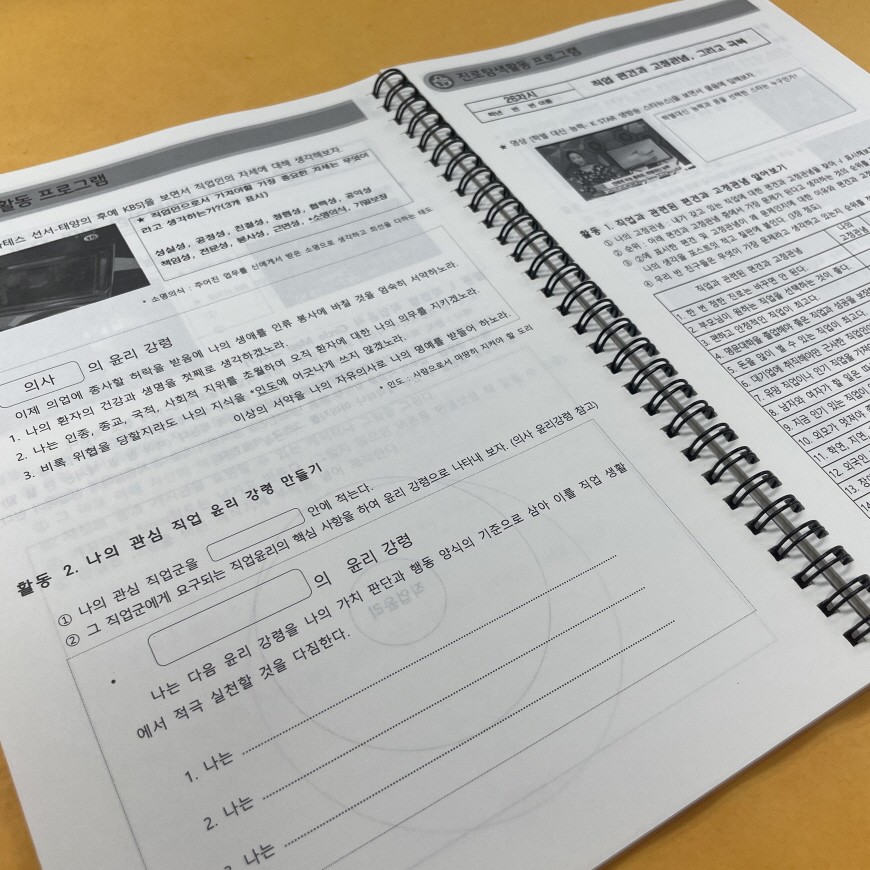 활동 프로그램
테스 선서-태양의 후예 KBS)을 보면서 직업인의 자세에 대해 생각해보자
★ 직업인으로서 가져야할 가장 중요한 자세는 무엇이
라고 생각하는가?(3개 표시)
성실성, 공정성, 친절성, 청렴성, 협력성, 공익성
책임성, 전문성, 봉사성, 근면성, *소명의식, 기밀보장
* 소명의식 : 주어진 업무를 신에게서 받은 소명으로 생각하고 최선을 다하는 태도
의사 의 윤리 강령
이제 의업에 종사할 허락을 받음에 나의 생애를 인류 봉사에 바칠 것을 엄숙히 서약하노라.
1. 나의 환자의 건강과 생명을 첫째로 생각하겠노라.
2. 나는 인종, 종교, 국적, 사회적 지위를 초월하여 오직 환자에 대한 나의 의무를 지키겠노라.
3. 비록 위협을 당할지라도 나의 지식을 *인도에 어긋나게 쓰지 않겠노라.
이상의 서약을 나의 자유의사로 나의 명예를 받들어 하노라.
* 인도 : 사람으로서 마땅히 지켜야 할 도리
활동 2. 나의 관심 직업 윤리 강령 만들기
① 나의 관심 직업군을 안에 적는다.
② 그 직업군에게 요구되는 직업윤리의 핵심 사항을 하여 윤리 강령으로 나타내 보자. (의사 윤리강령 참고)
의 윤리 강령
나는 다음 윤리 강령을 나의 가치 판단과 행동 양식의 기준으로 삼아 이를 직업 생활
에서 적극 실천할 것을 다짐한다.
1. 나는
2. 나는
3. 나는
진로탐색활동 프로그램
26차시
직업 편견과 고정관념, 그리고 극복
학년 반 번 이름
★ 영상 (학벌 대신 능력- K STAR 생방송 스타뉴스)을 보면서 물음에 답해보자
학벌대신 능력과 꿈을 선택한 스타는 누구인가?
활동 1. 직업과 관련된 편견과 고정관념 알아보기
① 나의 고정관념 : 내가 갖고 있는 직업에 대한 편견과 고정관념을 찾아
② 순위 : 아래 편견과 고정관념 중에서 가장 문제가 된다고 생각하는 것의 순위를
③ ②에 표시한 편견 및 고정관념이 왜 문제인지에 대한 이유와 편견과
나의 생각을 포스트잇에 적고 칠판에 붙인다.
④ 우리 반 친구들은 무엇이 가장 문제라고 생각하고 있는지 순위를
직업과 관련된 편견과 고정관념
나의
고정관념
1. 한 번 정한 진로는 바꾸면 안 된다.
2. 부모님이 원하는 직업을 선택하는 것이 좋다.
3. 편하고 안정적인 직업이 최고다.
4. 명문대학을 졸업해야 좋은 직업과 성공을 보장
5. 돈을 많이 벌 수 있는 직업이 최고다.
6. 대기업에 취직해야만
7. 유망 직업이나 인기 직업을
8. 남자와 여자가 할 일은
9. 지금 인기 있는 직업이
10. 외모가 멋져야
11. 학연, 지연,
12. 외국인
13.
14